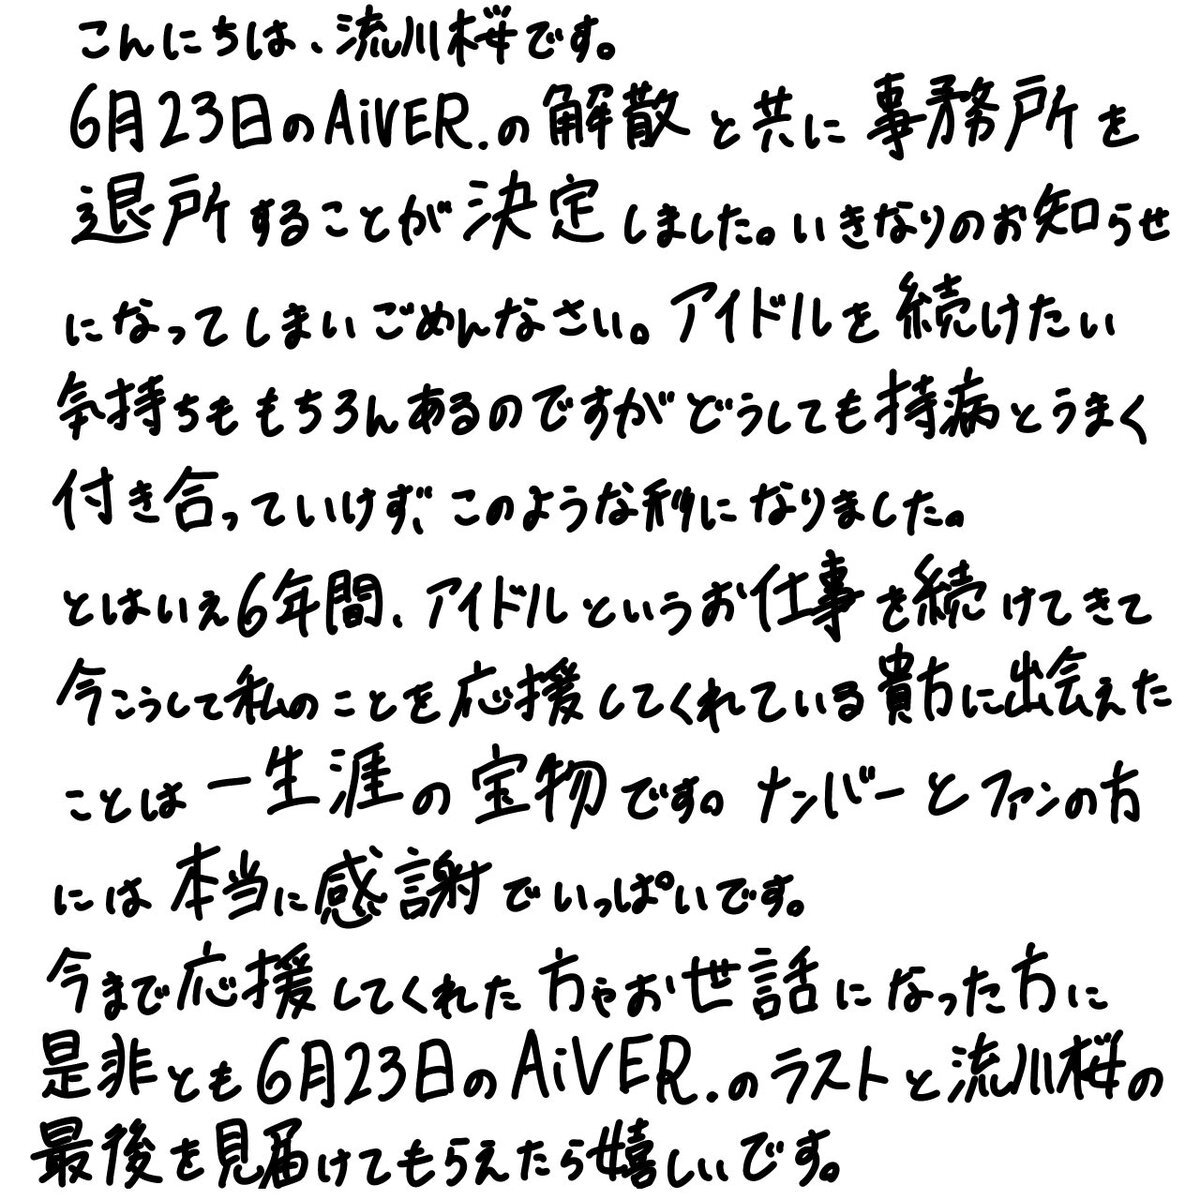 こんにちは、流川桜です。
6月23日のAiVER.の解散と共に事務所を
退所することが決定しました。いきなりのお知らせ
になってしまいごめんなさい。アイドルを続けたい
気持ちももちろんあるのですがどうしても持病とうまく
付き合っていけず、このような形になりました。
とはいえ6年間、アイドルというお仕事を続けてきて
今こうして私のことを応援してくれている貴方に出会えた
ことは一生涯の宝物です。ナンバーとファンの方
には本当に感謝でいっぱいです。
今まで応援してくれた方やお世話になった方に
是非とも6月23日のAiVER.のラストと流川桜の
最後を見届けてもらえたら嬉しいです。